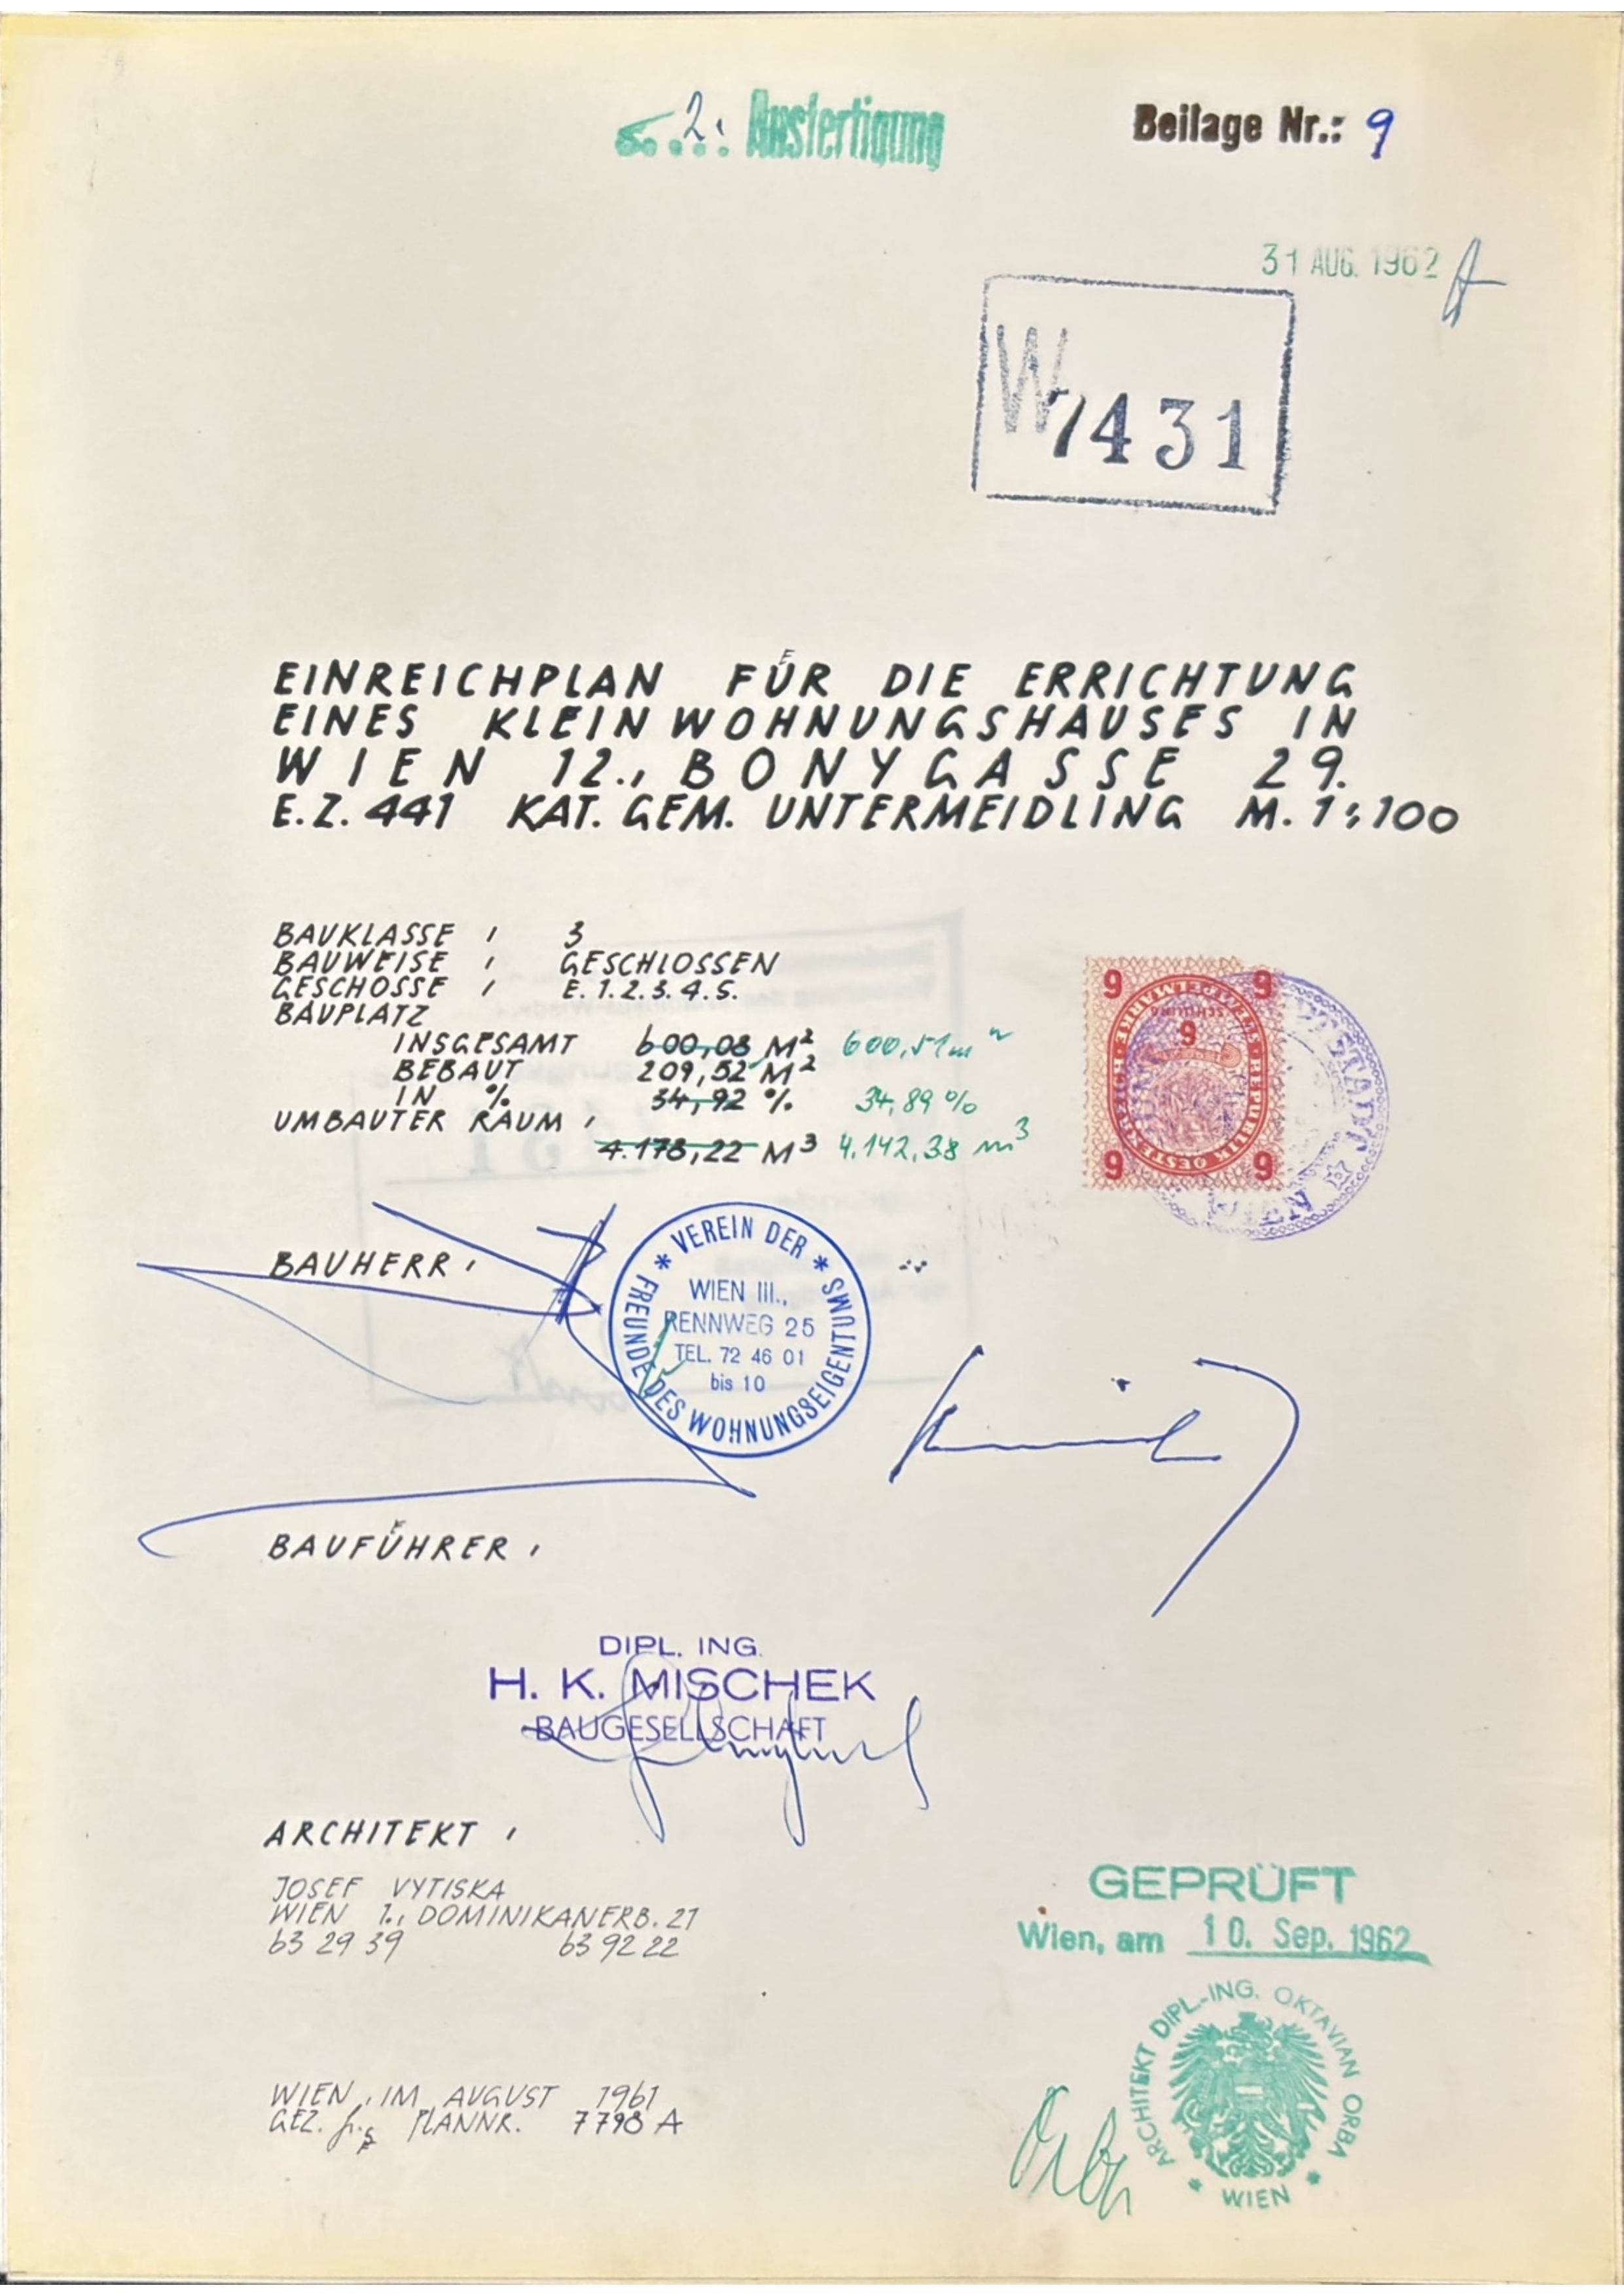 2. Ausfertigung
Beilage Nr.: 9
31 AUG. 1962
W 7431
EINREICHPLAN FÜR DIE ERRICHTUNG
EINES KLEINWOHNUNGSHAUSES IN
WIEN 12., BONYGASSE 29.
E.Z. 441 KAT. GEM. UNTERMEIDLING M. 1:100
BAUKLASSE : 3
BAUWEISE : GESCHLOSSEN
GESCHOSSE : E. 1. 2. 3. 4. 5.
BAUPLATZ
INSGESAMT 600,08 M² 600,51 m²
BEBAUT 209,52 M²
IN % 34,92 % 34,89 %
UMBAUTER RAUM :
4.178,22 M³ 4.142,38 m³
6 6
SCHILLING
6
STEMPELMARKE
REPUBLIK OESTERREICH
6 6
WIEN
BAUHERR :
VEREIN DER FREUNDE DES WOHNUNGSEIGENTUMS
WIEN III.,
RENNWEG 25
TEL. 72 46 01
bis 10
BAUFÜHRER :
DIPL. ING.
H. K. MISCHEK
BAUGESELLSCHAFT
ARCHITEKT :
JOSEF VYTISKA
WIEN 1., DOMINIKANERB. 21
63 29 39 63 92 22
GEPRÜFT
Wien, am 10. Sep. 1962
ARCHITEKT DIPL.-ING. OKTAVIAN ORBA
WIEN
Orba
WIEN, IM AUGUST 1961
GEZ. PLANNR. 7798 A